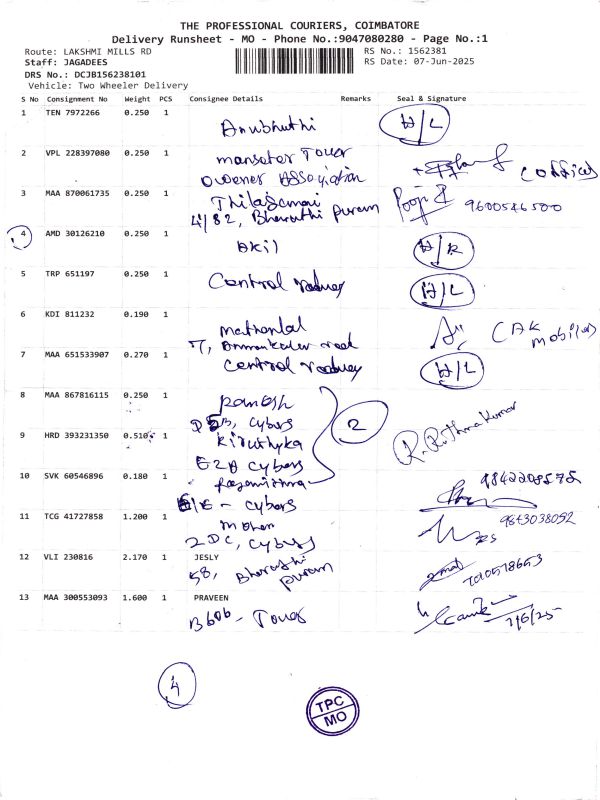 THE PROFESSIONAL COURIERS, COIMBATORE
Delivery Runsheet - MO - Phone No.:9047080280 - Page No.:1
Route: LAKSHMI MILLS RD
RS No.: 1562381
Staff: JAGADEES
RS Date: 07-Jun-2025
DRS No.: DCJB156238101
Vehicle: Two Wheeler Delivery
S No Consignment No Weight PCS Consignee Details Remarks Seal & Signature
1 TEN 7972266 0.250 1 Anubhuthi H/L
2 VPL 228397080 0.250 1 Tower
Owener Association (office)
3 MAA 870061735 0.250 1
4/82, Bharathi puram 9600546500
4 AMD 30126210 0.250 1 Akil H/R
5 TRP 651197 0.250 1 Central H/L
6 KDI 811232 0.190 1
7, road CAK mobiles
7 MAA 651533907 0.270 1 Central H/L
8 MAA 867816115 0.250 1 Ramesh
Cybers 2
9 HRD 393231350 0.510 1 Kiruthyka
E2A Cybers
10 SVK 60546896 0.180 1
- Cybers
11 TCG 41727858 1.200 1 Mohan 9843038092
2DC, Cybers
12 VLI 230816 2.170 1 JESLY
58, Bharathi puram
13 MAA 300553093 1.600 1 PRAVEEN
B606 - Tower 7/6/25
4
TPC
MO